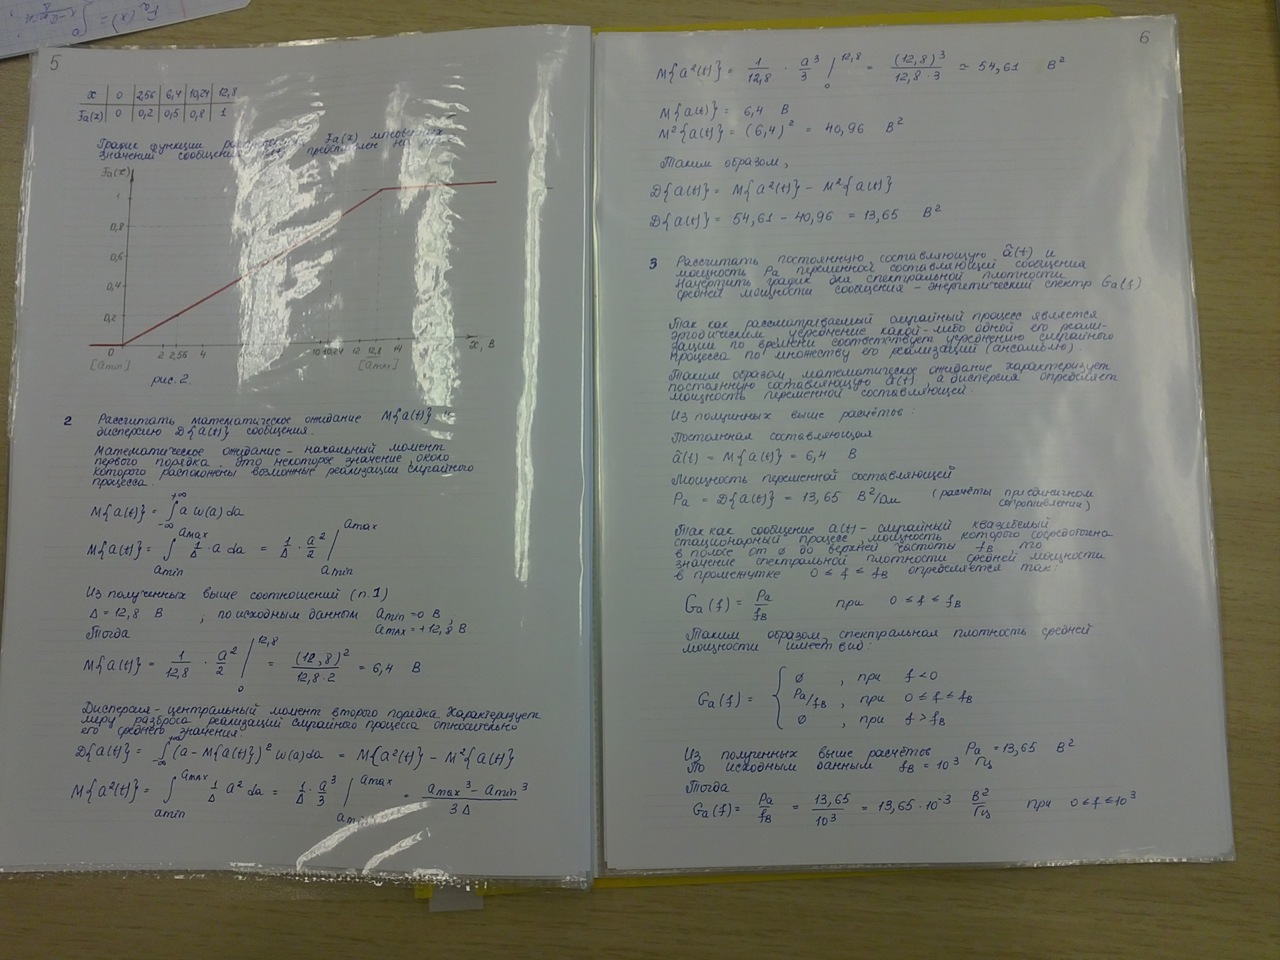 5
x 0 2,56 6,4 10,24 12,8
Fa(x) 0 0,2 0,5 0,8 1
График функции Fa(x) мгновенных
значений сообщения представлен на
Fa(x)
1
0,8
0,6
0,4
0,2
0 2 2,56 4 10 10,24 12 12,8 14 x, В
[amin] [amax]
рис. 2.
2 Рассчитать математическое ожидание M{a(t)} и
дисперсию D{a(t)} сообщения.
Математическое ожидание - начальный момент
первого порядка. Это некоторое значение, около
которого расположены возможные реализации случайного
процесса.
M{a(t)} = ∫₋∞⁺∞ a w(a) da
M{a(t)} = ∫amin^amax 1/Δ · a da = 1/Δ · a²/2 |amin^amax
Из полученных выше соотношений (п.1)
Δ = 12,8 В , по исходным данным amin = 0 В ;
amax = +12,8 В
Тогда
M{a(t)} = 1/12,8 · a²/2 |₀^12,8 = (12,8)²/(12,8·2) = 6,4 В
Дисперсия - центральный момент второго порядка. Характеризует
меру разброса реализаций случайного процесса относительно
его среднего значения.
D{a(t)} = ∫₋∞⁺∞ (a - M{a(t)})² w(a) da = M{a²(t)} - M²{a(t)}
M{a²(t)} = ∫amin^amax 1/Δ a² da = 1/Δ · a³/3 |amin^amax = (amax³ - amin³)/3Δ
6
M{a²(t)} = 1/12,8 · a³/3 |₀^12,8 = (12,8)³/(12,8·3) ≃ 54,61 В²
M{a(t)} = 6,4 В
M²{a(t)} = (6,4)² = 40,96 В²
Таким образом,
D{a(t)} = M{a²(t)} - M²{a(t)}
D{a(t)} = 54,61 - 40,96 = 13,65 В²
3 Рассчитать постоянную составляющую ã(t) и
мощность Pa переменной составляющей сообщения
Начертить график для спектральной плотности
средней мощности сообщения - энергетический спектр Ga(f)
Так как рассматриваемый случайный процесс является
эргодическим, усреднение какой-либо одной его реали-
зации по времени соответствует усреднению случайного
процесса по множеству его реализаций (ансамблю).
Таким образом, математическое ожидание характеризует
постоянную составляющую ã(t), а дисперсия определяет
мощность переменной составляющей.
Из полученных выше расчётов :
Постоянная составляющая
ã(t) = M{a(t)} = 6,4 В
Мощность переменной составляющей
Pa = D{a(t)} = 13,65 В²/Ом (расчёты при единичном
сопротивлении)
Так как сообщение a(t) - случайный квазибелый
стационарный процесс, мощность которого сосредоточена
в полосе от ∅ до верхней частоты fв то
значение спектральной плотности средней мощности
в промежутке 0 ≤ f ≤ fв определяется так:
Ga(f) = Pa/fв при 0 ≤ f ≤ fв
Таким образом, спектральная плотность средней
мощности имеет вид:
Ga(f) = { ∅ , при f < 0
Pa/fв , при 0 ≤ f ≤ fв
∅ , при f > fв
Из полученных выше расчётов Pa = 13,65 В²
По исходным данным fв = 10³ Гц
Тогда
Ga(f) = Pa/fв = 13,65/10³ = 13,65·10⁻³ В²/Гц при 0 ≤ f ≤ 10³